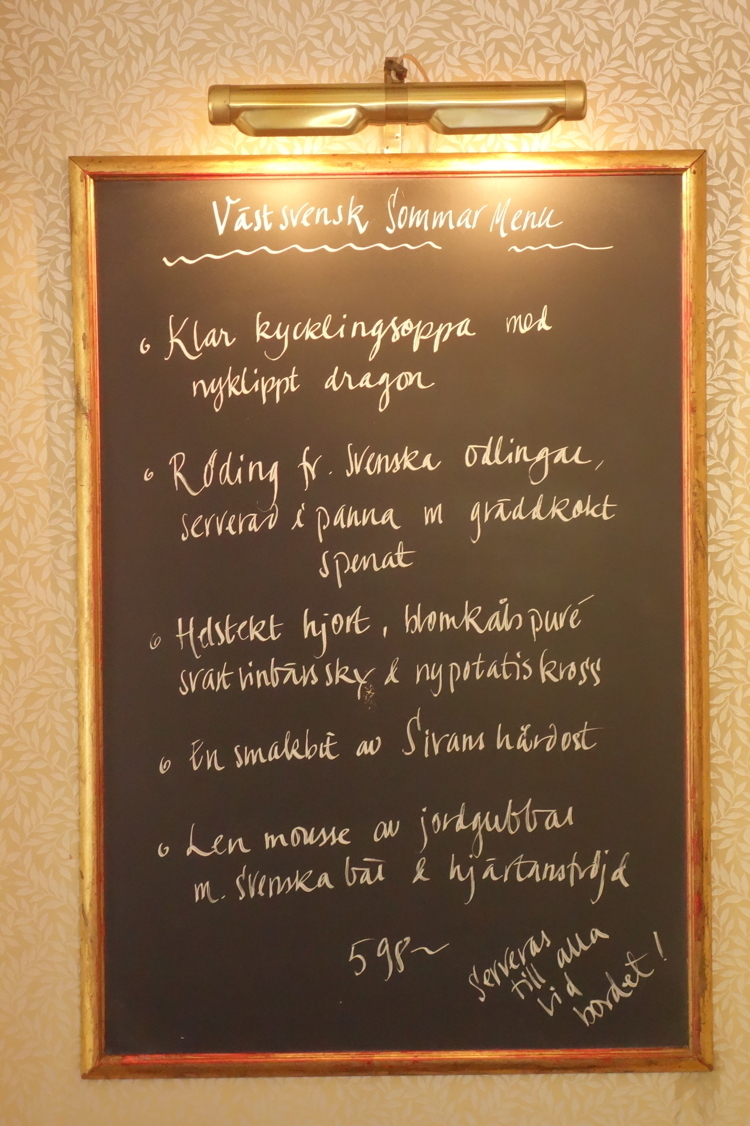 Västsvensk Sommar Menu
Klar kycklingsoppa med
nyklippt dragon
Röding fr. Svenska odlingar,
serverad i panna m gräddkokt
spenat
Helstekt hjort, blomkålspuré
svartvinbärssky & nypotatiskross
En smakbit av Sivans hårdost
Len mousse av jordgubbar
m. Svenska bär & hjärtansfröjd
598~
Serveras
till alla
vid
bordet!